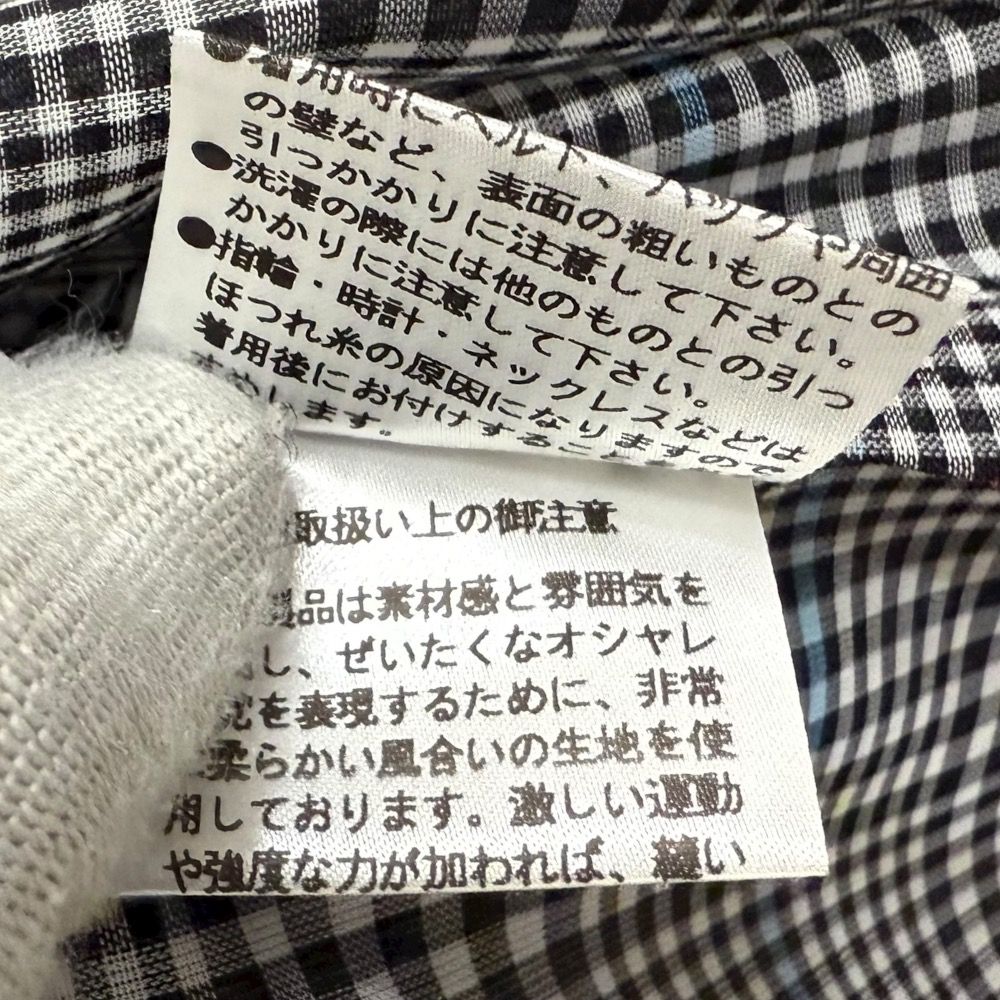 ●着用時にベルト、バッグや周囲
の壁など、表面の粗いものとの
引つかかりに注意して下さい。
●洗濯の際には他のものとの引つ
かかりに注意して下さい。
●指輪・時計・ネックレスなどは
ほつれ糸の原因になりますので
着用後にお付けすること
します。
取扱い上の御注意
品は素材感と雰囲気を
し、ぜいたくなオシャレ
を表現するために、非常
柔らかい風合いの生地を使
用しております。激しい運動
や強度な力が加われば、縫い